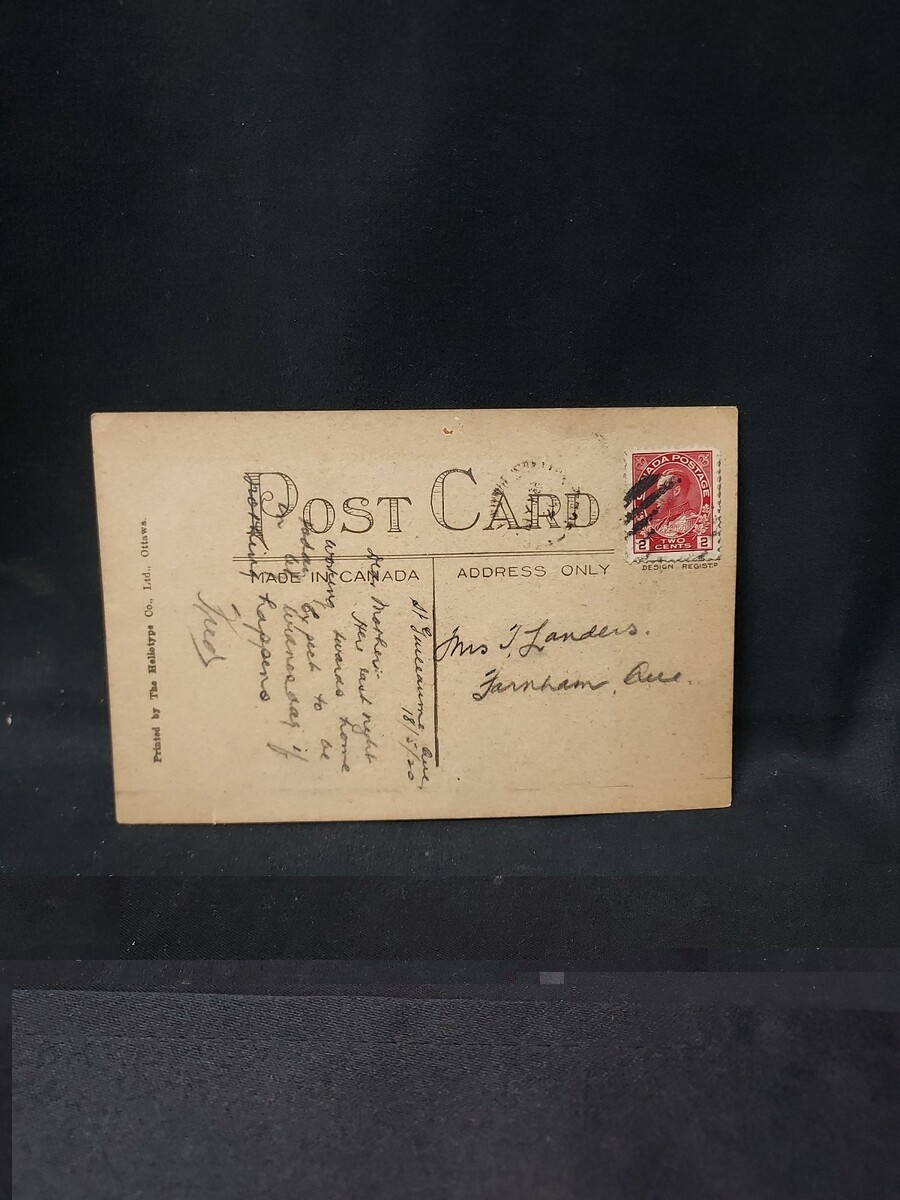 POST CARD
MADE IN CANADA
ADDRESS ONLY
CANADA POSTAGE
2 TWO CENTS 2
DESIGN REGIST'D
Mrs T. Landers.
Farnham, Que.
St Guilleaume, Que,
18/5/20
Dear Mother:
Here last night
working towards home
today. Expect to be
in by Wednesday if
nothing happens
Fred
Printed by The Heliotype Co., Ltd., Ottawa.